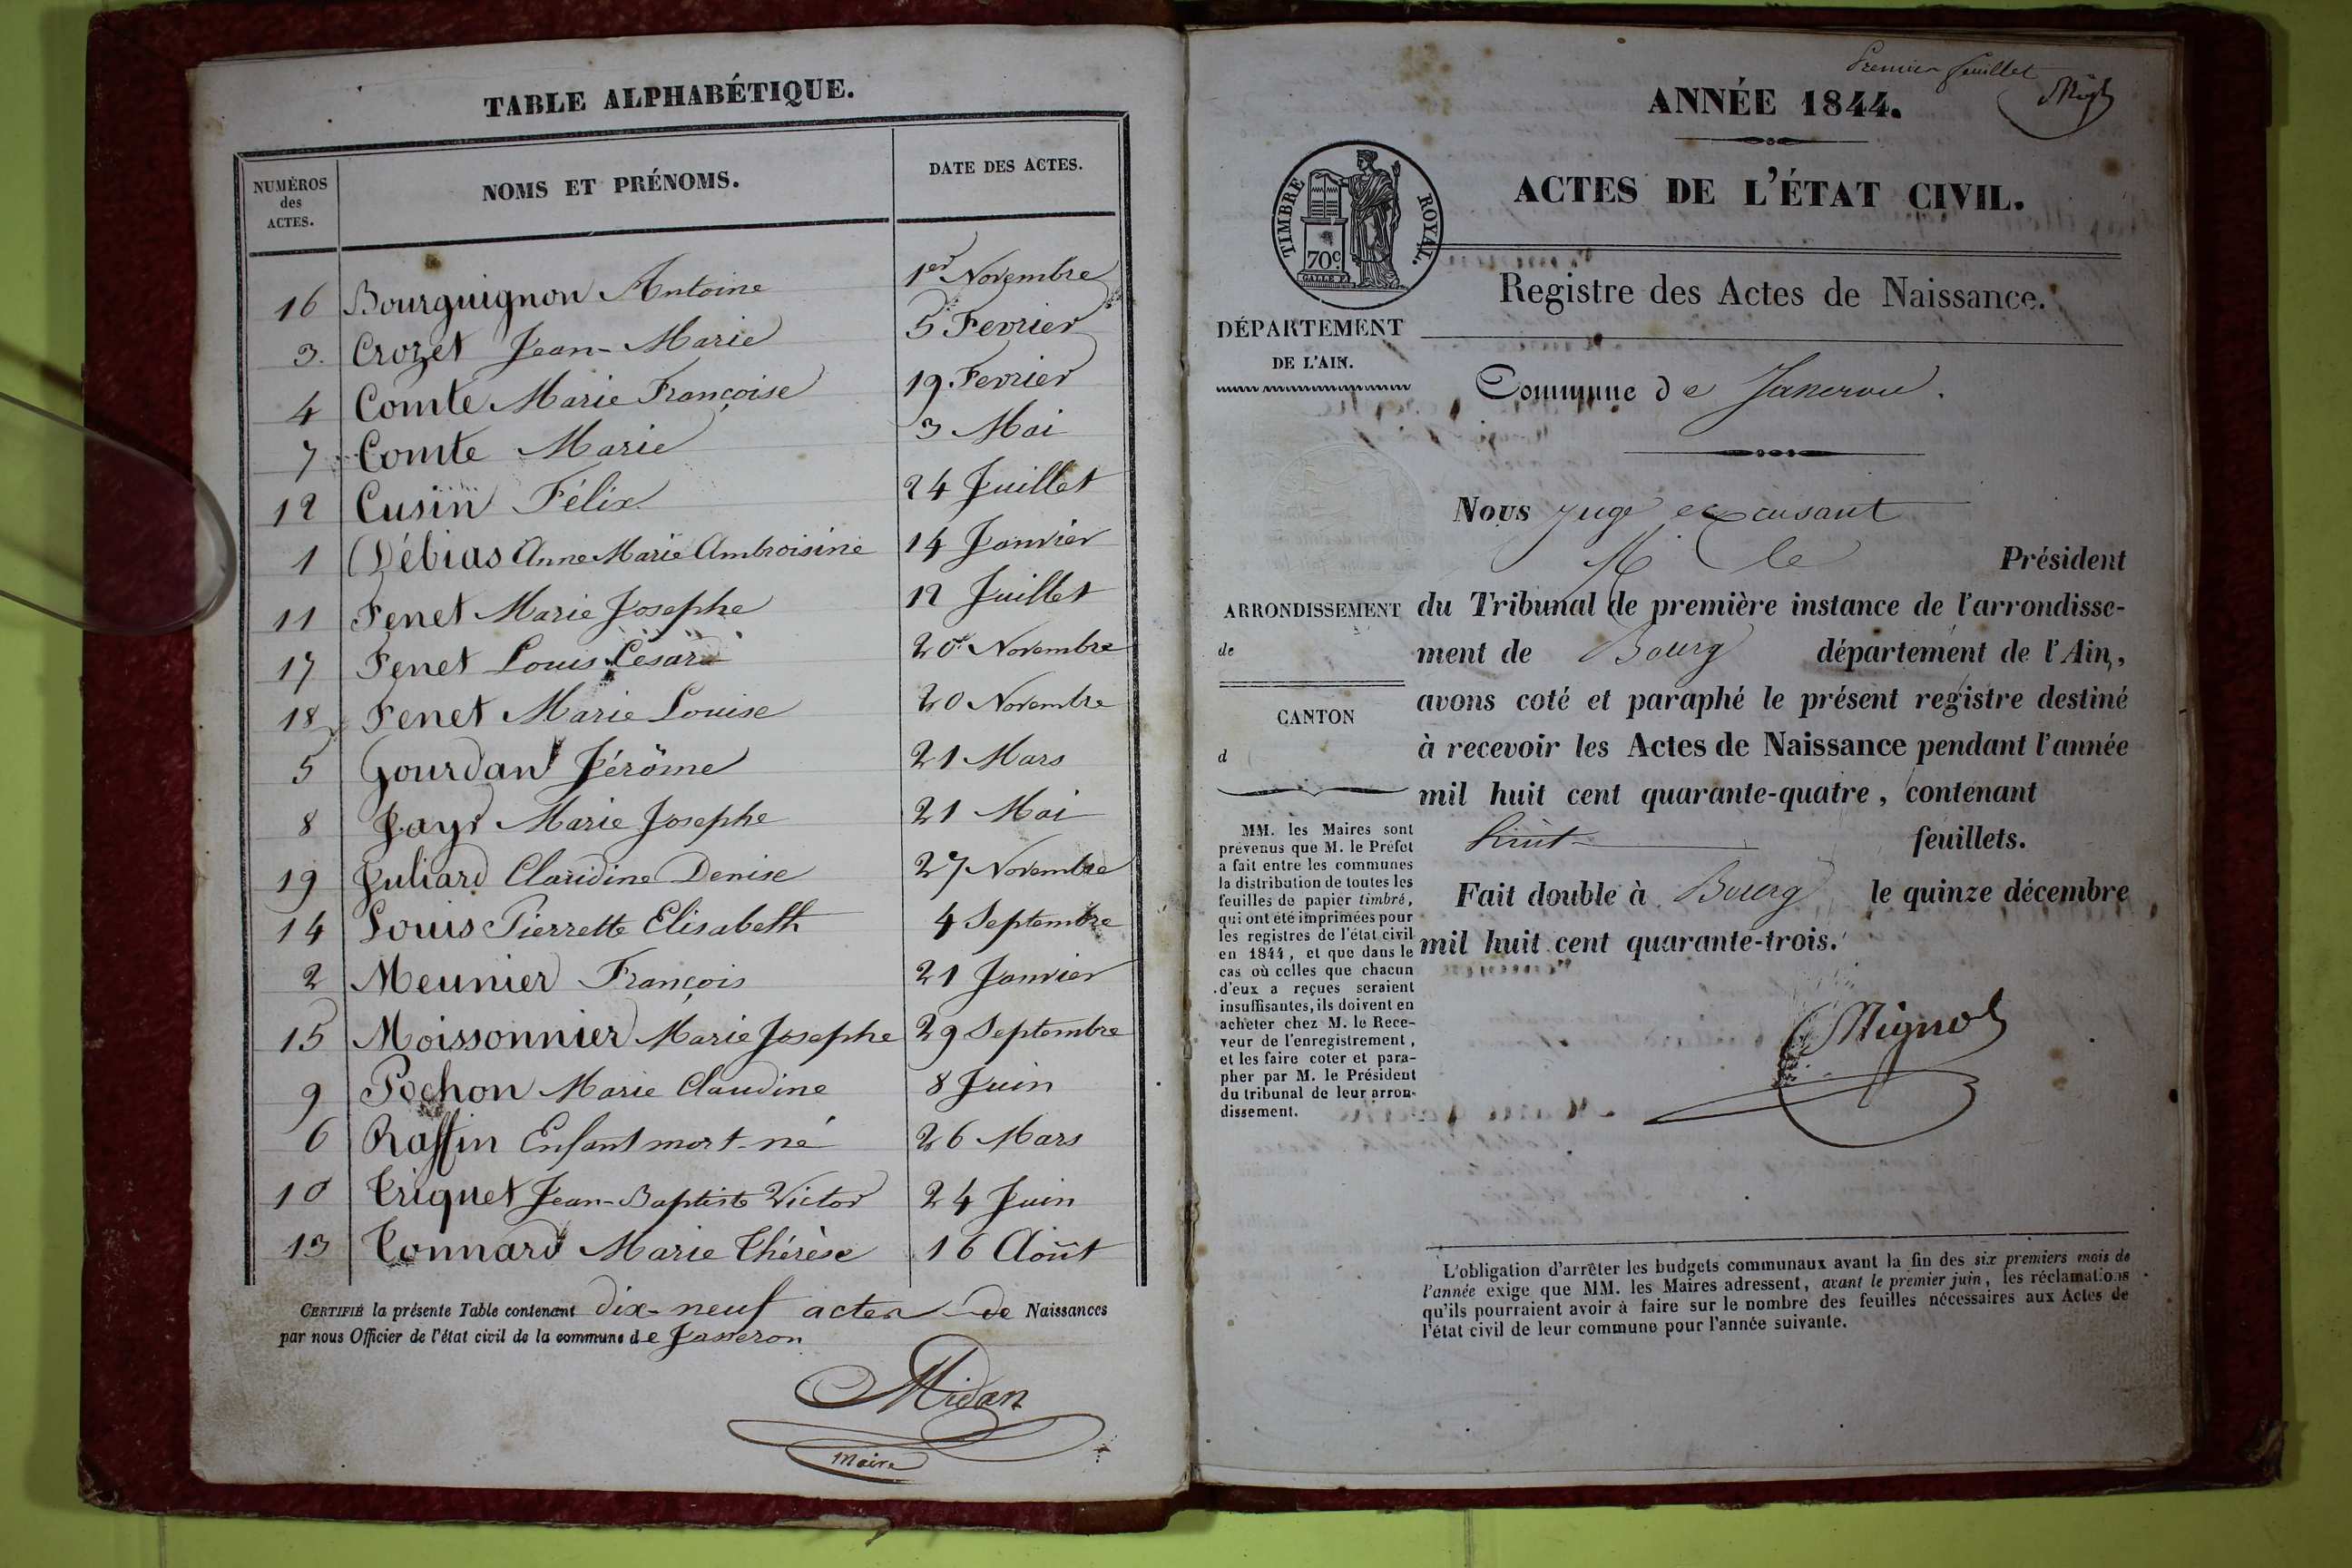 TABLE ALPHABÉTIQUE.
NUMÉROS des ACTES. NOMS ET PRÉNOMS. DATE DES ACTES.
16 Bourguignon Antoine 1er Novembre
3. Crozet Jean-Marie 5 Fevrier
4 Comte Marie Françoise 19 Fevrier
7 Comte Marie 3 Mai
12 Cusin Félix 24 Juillet
1 Débias Anne Marie Ambroisine 14 Janvier
11 Fenet Marie Josephe 12 Juillet
17 Fenet Louis César 20 Novembre
18 Fenet Marie Louise 20 Novembre
5 Gourdan Jérôme 21 Mars
8 Jayr Marie Josephe 21 Mai
19 Juliard Claudine Denise 27 Novembre
14 Louis Pierrette Elisabeth 4 Septembre
2 Meunier François 21 Janvier
15 Moissonnier Marie Josephe 29 Septembre
9 Pochon Marie Claudine 8 Juin
6 Raffin Enfant mort-né 26 Mars
10 Triquet Jean-Baptiste Victor 24 Juin
13 Tonnard Marie Thérèse 16 Août
CERTIFIÉ la présente Table contenant dix-neuf actes de Naissances
par nous Officier de l'état civil de la commune de Jasseron
Midan
Maire
Premier feuillet
ANNÉE 1844.
ACTES DE L'ÉTAT CIVIL.
TIMBRE ROYAL.
70c.
Registre des Actes de Naissance.
DÉPARTEMENT
DE L'AIN.
Commune de Jasseron.
Nous juge excusant
M le Président
ARRONDISSEMENT
de
CANTON
d
du Tribunal de première instance de l'arrondisse-
ment de Bourg département de l'Ain,
avons coté et paraphé le présent registre destiné
à recevoir les Actes de Naissance pendant l'année
mil huit cent quarante-quatre, contenant
huit feuillets.
Fait double à Bourg le quinze décembre
mil huit cent quarante-trois.
MM. les Maires sont
prévenus que M. le Préfet
a fait entre les communes
la distribution de toutes les
feuilles de papier timbré,
qui ont été imprimées pour
les registres de l'état civil
en 1844, et que dans le
cas où celles que chacun
d'eux a reçues seraient
insuffisantes, ils doivent en
acheter chez M. le Rece-
veur de l'enregistrement,
et les faire coter et para-
pher par M. le Président
du tribunal de leur arron-
dissement.
Mignot
L'obligation d'arrêter les budgets communaux avant la fin des six premiers mois de
l'année exige que MM. les Maires adressent, avant le premier juin, les réclamations
qu'ils pourraient avoir à faire sur le nombre des feuilles nécessaires aux Actes de
l'état civil de leur commune pour l'année suivante.